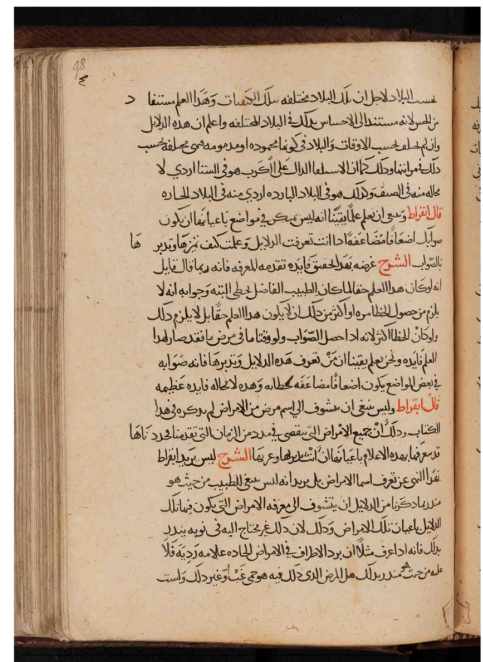 98
بحسب البلاد لاجل ان تلك البلاد مختلفه بتلك الكيفيات وهذا العلم مستنفا د
من الحس لانه مستند الى الاحساس بذلك في البلاد المختلفه واعلم ان هذه الدلايل
وان لم تختلف بحسب الاوقات والبلاد في كونها محموده او مذمومه فهي مختلفه بحسب
ذلك في مراتبها وذلك كما ان الاستلقا الدال على الكرب هو في الشتا اردي لا
محاله منه في الصيف وكذلك هو في البلاد البارده اردي منه في البلاد الحاره
قال ابقراط وينبغي ان تعلم علما يقينا انه ليس يمكن في مواضع باعيانها ان يكون
صوابك اضعافا مضاعفة اذا انت تعرفت الدلايل وعلمت كيف تميزها وتدبر ها
بالصواب الشرح غرضه بهذا تحقيق فايده تقدمه المعرفه فانه ربما قال قايل
انه لو كان هذا العلم حقا لما كان الطبيب الفاضل يخطي البته وجوابه انه لا
يلزم من حصول الخطا مره او اكثر من ذلك ان لا يكون هذا العلم حقا بل لا يلزم ذلك
ولو كان الخطا اكثر لانه اذا حصل الصواب ولو وقتا ما في مرض ما فقد صار لهذا
العلم فايده ونحن نعلم يقينا ان من تعرف هذه الدلايل وتدبرها فانه صوابه
في بعض المواضع يكون اضعافا مضاعفه لخطايه وهذه لا محاله فايده عظيمه
قال ابقراط وليس ينبغي ان تتشوف الى اسم مرض من الامراض لم نذكره في هذا
الكتاب وذلك ان جميع الامراض التي تنقضي في مدد من الزمان التي تقدمنا فحدد ناها
قد تعرفها بهذه الاعلام باعيانها ان انت تدبرتها وعرفتها الشرح ليس يريد ابقراط
بهذا النهي عن تعرف اسما الامراض بل يريد انه ليس ينبغي للطبيب من حيث هو
منذر بما ذكرنا من الدلايل ان يتشوف الى معرفه الامراض التي يكون فيها تلك
الدلايل باعيان تلك الامراض وذلك لان ذلك غير محتاج اليه في كونه ينذر
بذلك فانه اذا عرف مثلا ان برد الاطراف في الامراض الحاده علامه رديه فلا
عليه من حيث هو منذر بذلك هل المرض الذي ذلك فيه هو حمى غب او غير ذلك وليست